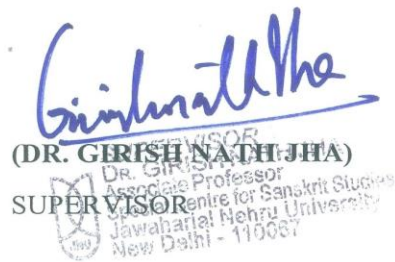 Girishnath Jha
(DR. GIRISH NATH JHA)
SUPERVISOR
SUPERVISOR
DR. GIRISH
Associate Professor
Special Centre for Sanskrit Studies
Jawaharlal Nehru University
New Delhi - 110067
JNU